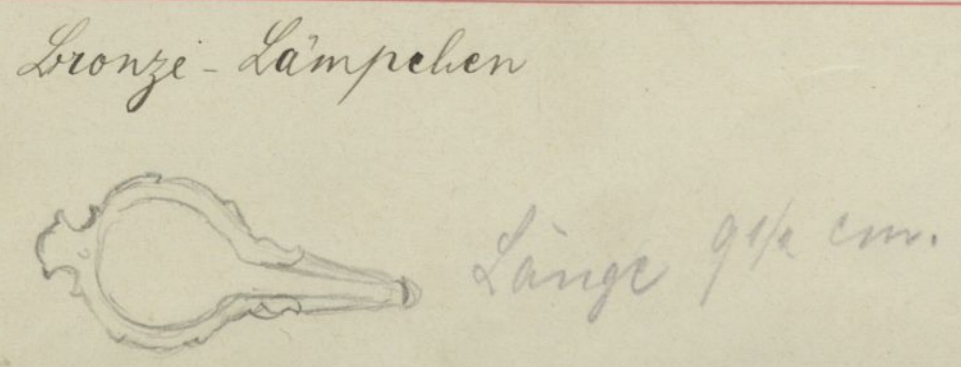 Bronze-Lämpchen
Länge 9 1/2 cm.